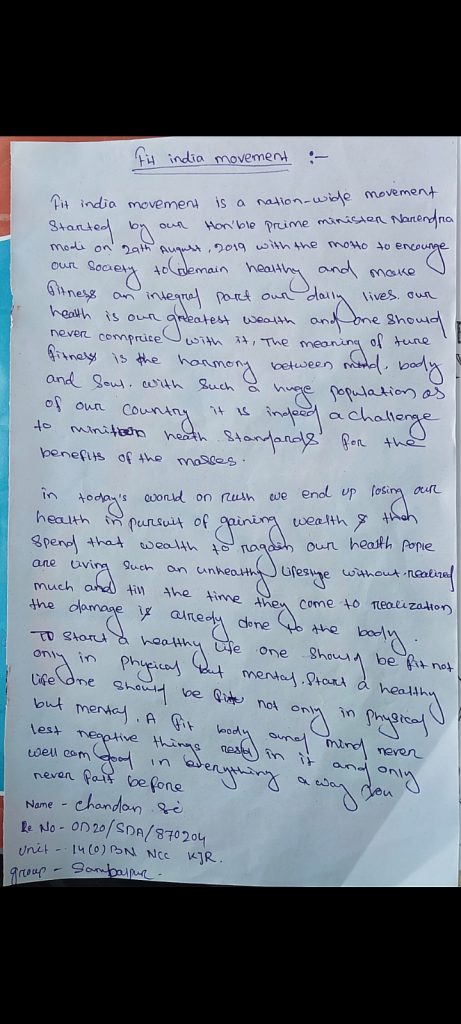 Fit india movement :-
Fit india movement is a nation-wide movement
Started by our Hon'ble prime minister Narendra
modi on 29th August, 2019 with the motto to encourge
our society to remain healthy and make
fitness an integral part our daily lives. our
health is our greatest wealth and one should
never comprise with it, The meaning of ture
fitness is the harmony between mind, body
and soul. with such a huge population as
of our country it is indeed a challenge
to heath standards for the
benefits of the masses.
in today's world on rush we end up losing our
health in pursuit of gaining wealth & then
spend that wealth to ragain our health pople
are living such an unhealthy lifestye without realized
much and till the time they come to realization
the damage is alredy done to the body.
To start a healthy life one should be fit not
only in physical but mental. Start a healthy
life one should be fit not only in physical
but mental. A fit body and mind never
lest negative things rest in it and only
well com good in everything a way you
never falt before
Name - chandan. Se
Re No - OD20/SDA/870204
unit - 14(O) BN NCC KJR.
group - Sambalpur.